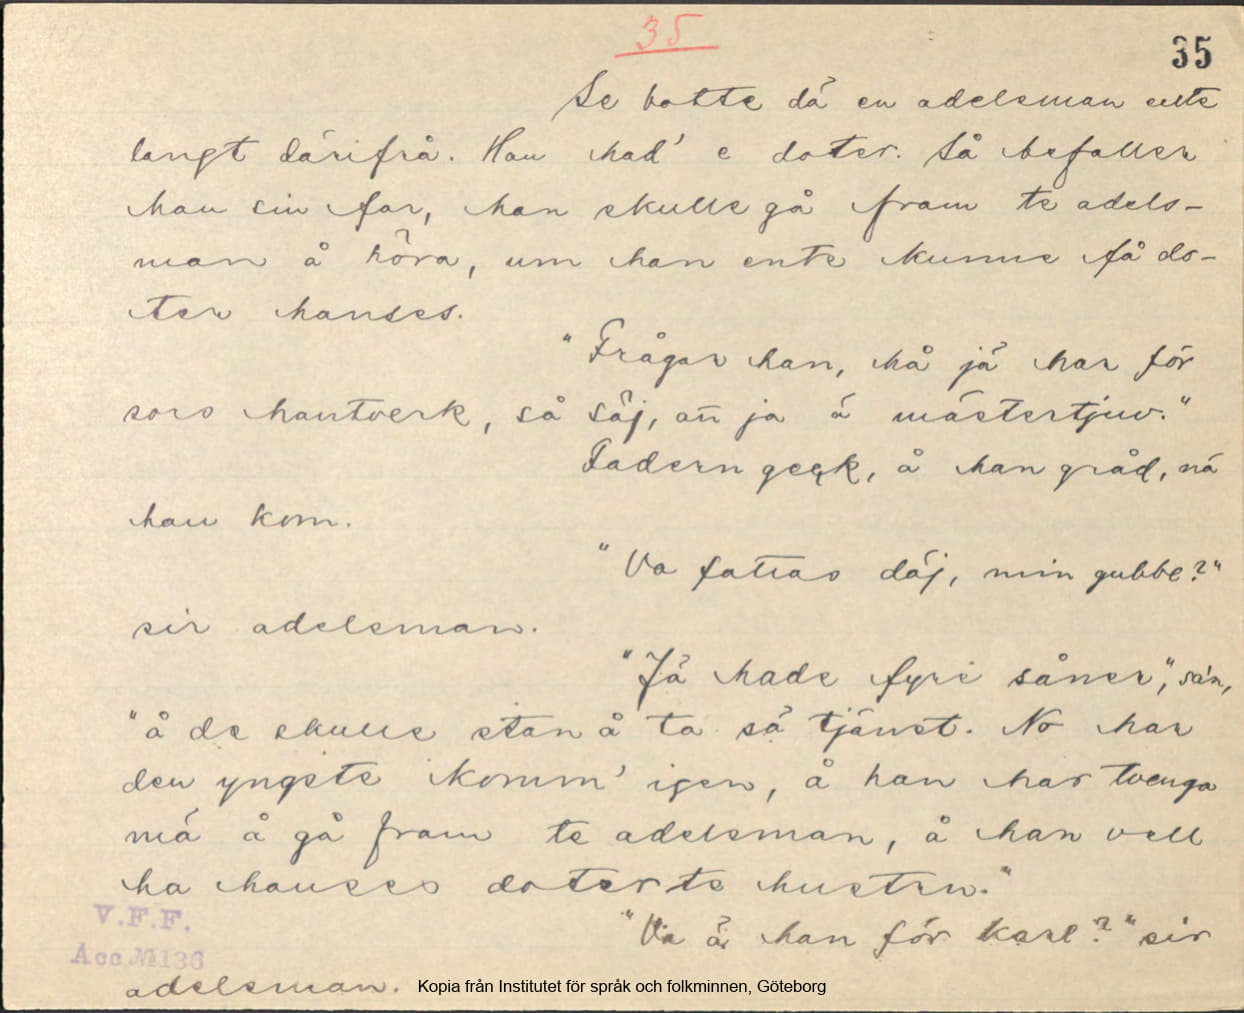 35
35
Se botte då en adelsman ente
langt därifrå. Han had' e doter. Så befaller
han sin far, han skulle gå fram te adels-
man å höra, um han ente kunne få do-
ter hanses.
"Frågar han, hå jä har för
sors hantverk, så säj, an ja ä mästertjuv."
Fadern geck, å han gråd, nä
han kom.
"Va fattas däj, min gubbe?"
sir adelsman.
"Jä hade fyre såner", sa'n,
"å de skulle stan å ta sä tjänst. No har
den yngste komm' igen, å han har tvenga
mä å gå fram te adelsman, å han vell
ha hanses doter te hustru."
"Va ä han för karl?" sir
adelsman.
V.F.F.
Acc № 136
Kopia från Institutet för språk och folkminnen, Göteborg